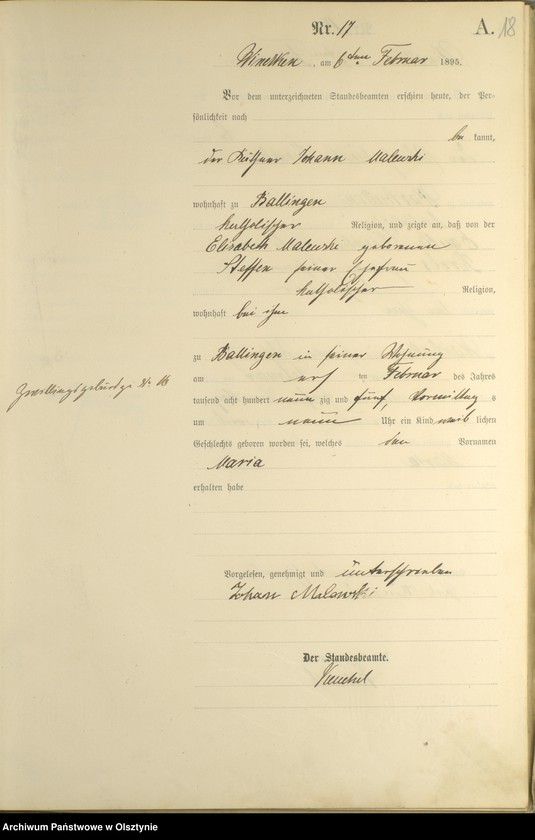 Nr. 17
A. 18
am 6ten Februar 1895.
Vor dem unterzeichneten Standesbeamten erschien heute, der Per-
sönlichkeit nach
be kannt,
der Johann Malewski
wohnhaft zu Ballingen
katholischer Religion, und zeigte an, daß von der
Elisabeth Malewski geborenen
Steffen seiner Ehefrau
katholischer Religion,
wohnhaft bei ihm
zu Ballingen in seiner Wohnung
am ten Februar des Jahres
tausend acht hundert neun zig und fünf, Vormittag s
um neun Uhr ein Kind weib lichen
Geschlechts geboren worden sei, welches den Vornamen
Maria
erhalten habe
Zwillingsgeburt No 16
Vorgelesen, genehmigt und unterschrieben
Johann Malewski
Der Standesbeamte.
Archiwum Państwowe w Olsztynie